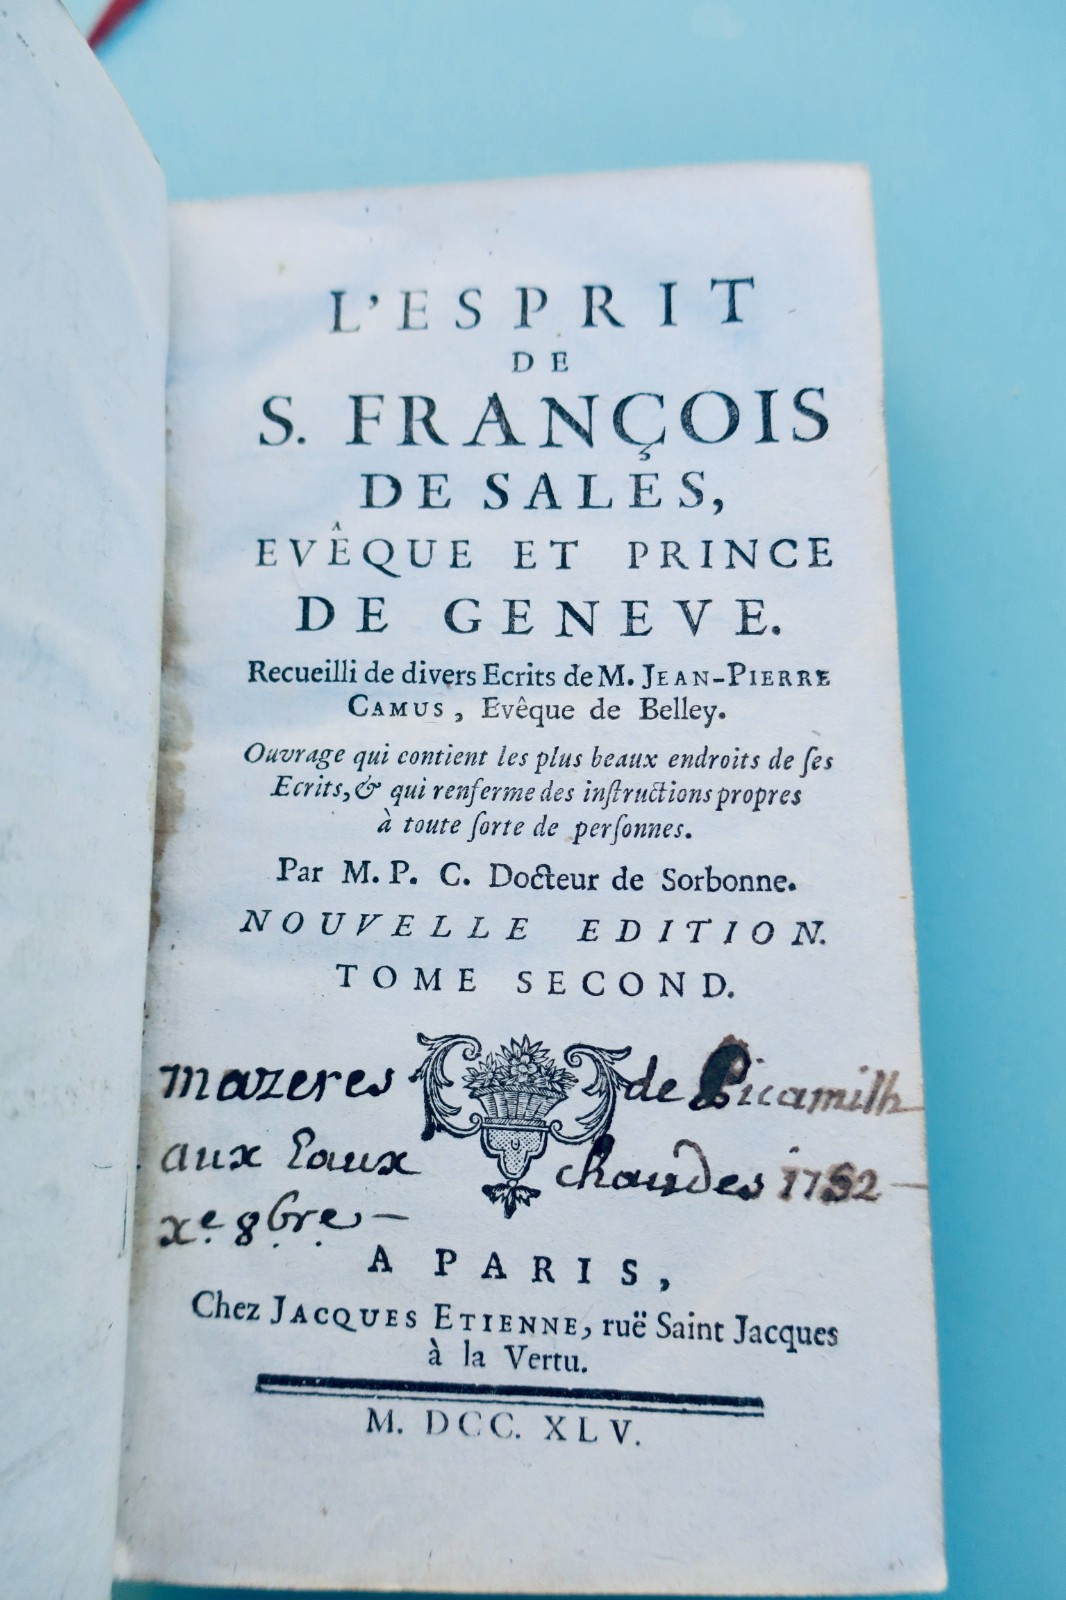 L'ESPRIT
DE
S. FRANÇOIS
DE SALES,
EVÊQUE ET PRINCE
DE GENEVE.
Recueilli de divers Ecrits de M. JEAN-PIERRE
CAMUS, Evêque de Belley.
Ouvrage qui contient les plus beaux endroits de ſes
Ecrits, & qui renferme des inſtructions propres
à toute ſorte de perſonnes.
Par M. P. C. Docteur de Sorbonne.
NOUVELLE EDITION.
TOME SECOND.
mazeres de Picamilh
aux Eaux chaudes 1752 —
xe. 8bre —
A PARIS,
Chez JACQUES ETIENNE, ruë Saint Jacques
à la Vertu.
M. DCC. XLV.